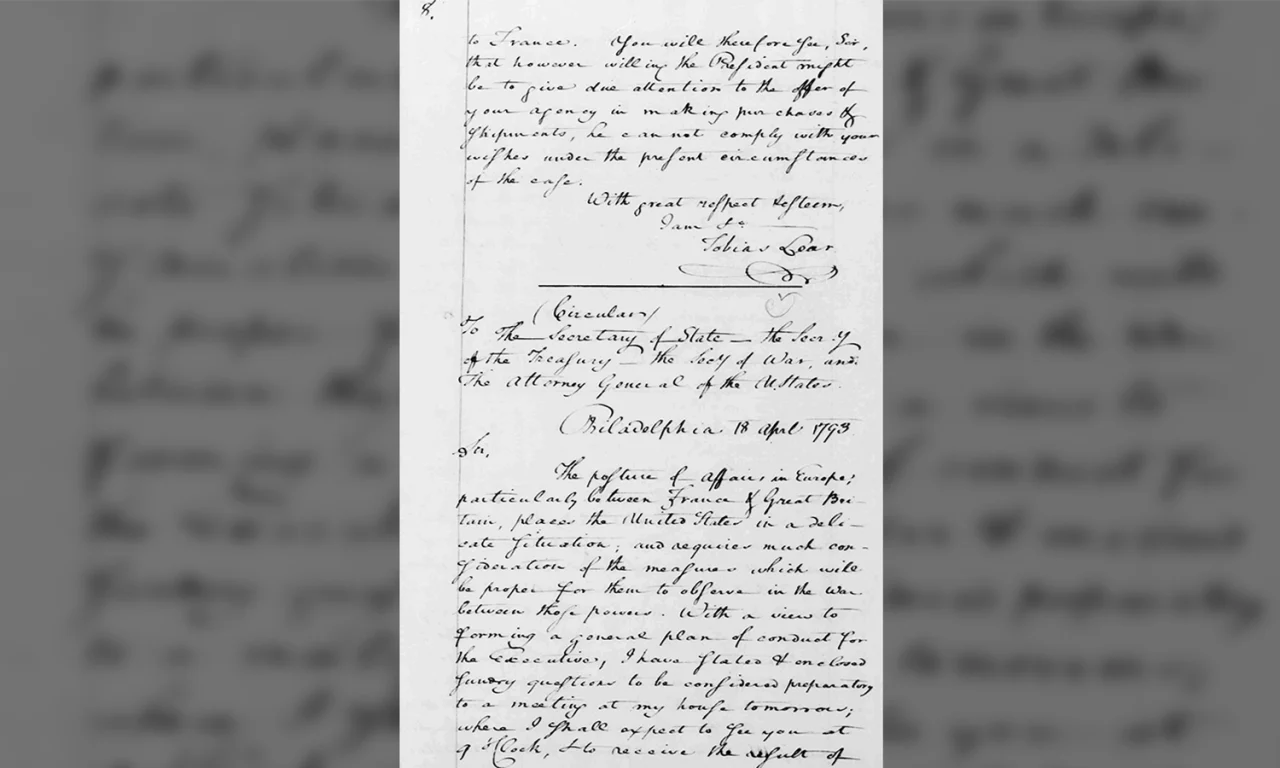 8.
to France. You will therefore see, Sir,
that however willing the President might
be to give due attention to the offer of
your agency in making purchases &
shipments, he cannot comply with your
wishes under the present circumstances
of the case.
With great respect & esteem,
I am &c
Tobias Lear
(Circular)
To The Secretary of State — the Secry
of the Treasury — the Secy of War, and
The Attorney General of the U.States.
Philadelphia 18 April 1793
Sir,
The posture of affairs in Europe,
particularly between France & Great Bri-
tain, places the United States in a deli-
cate situation; and requires much con-
sideration of the measures which will
be proper for them to observe in the War
between those powers. With a view to
forming a general plan of conduct for
the Executive, I have stated & enclosed
sundry questions to be considered preparatory
to a meeting at my house tomorrow;
where I shall expect to see you at
9 o'Clock, & to receive the result of